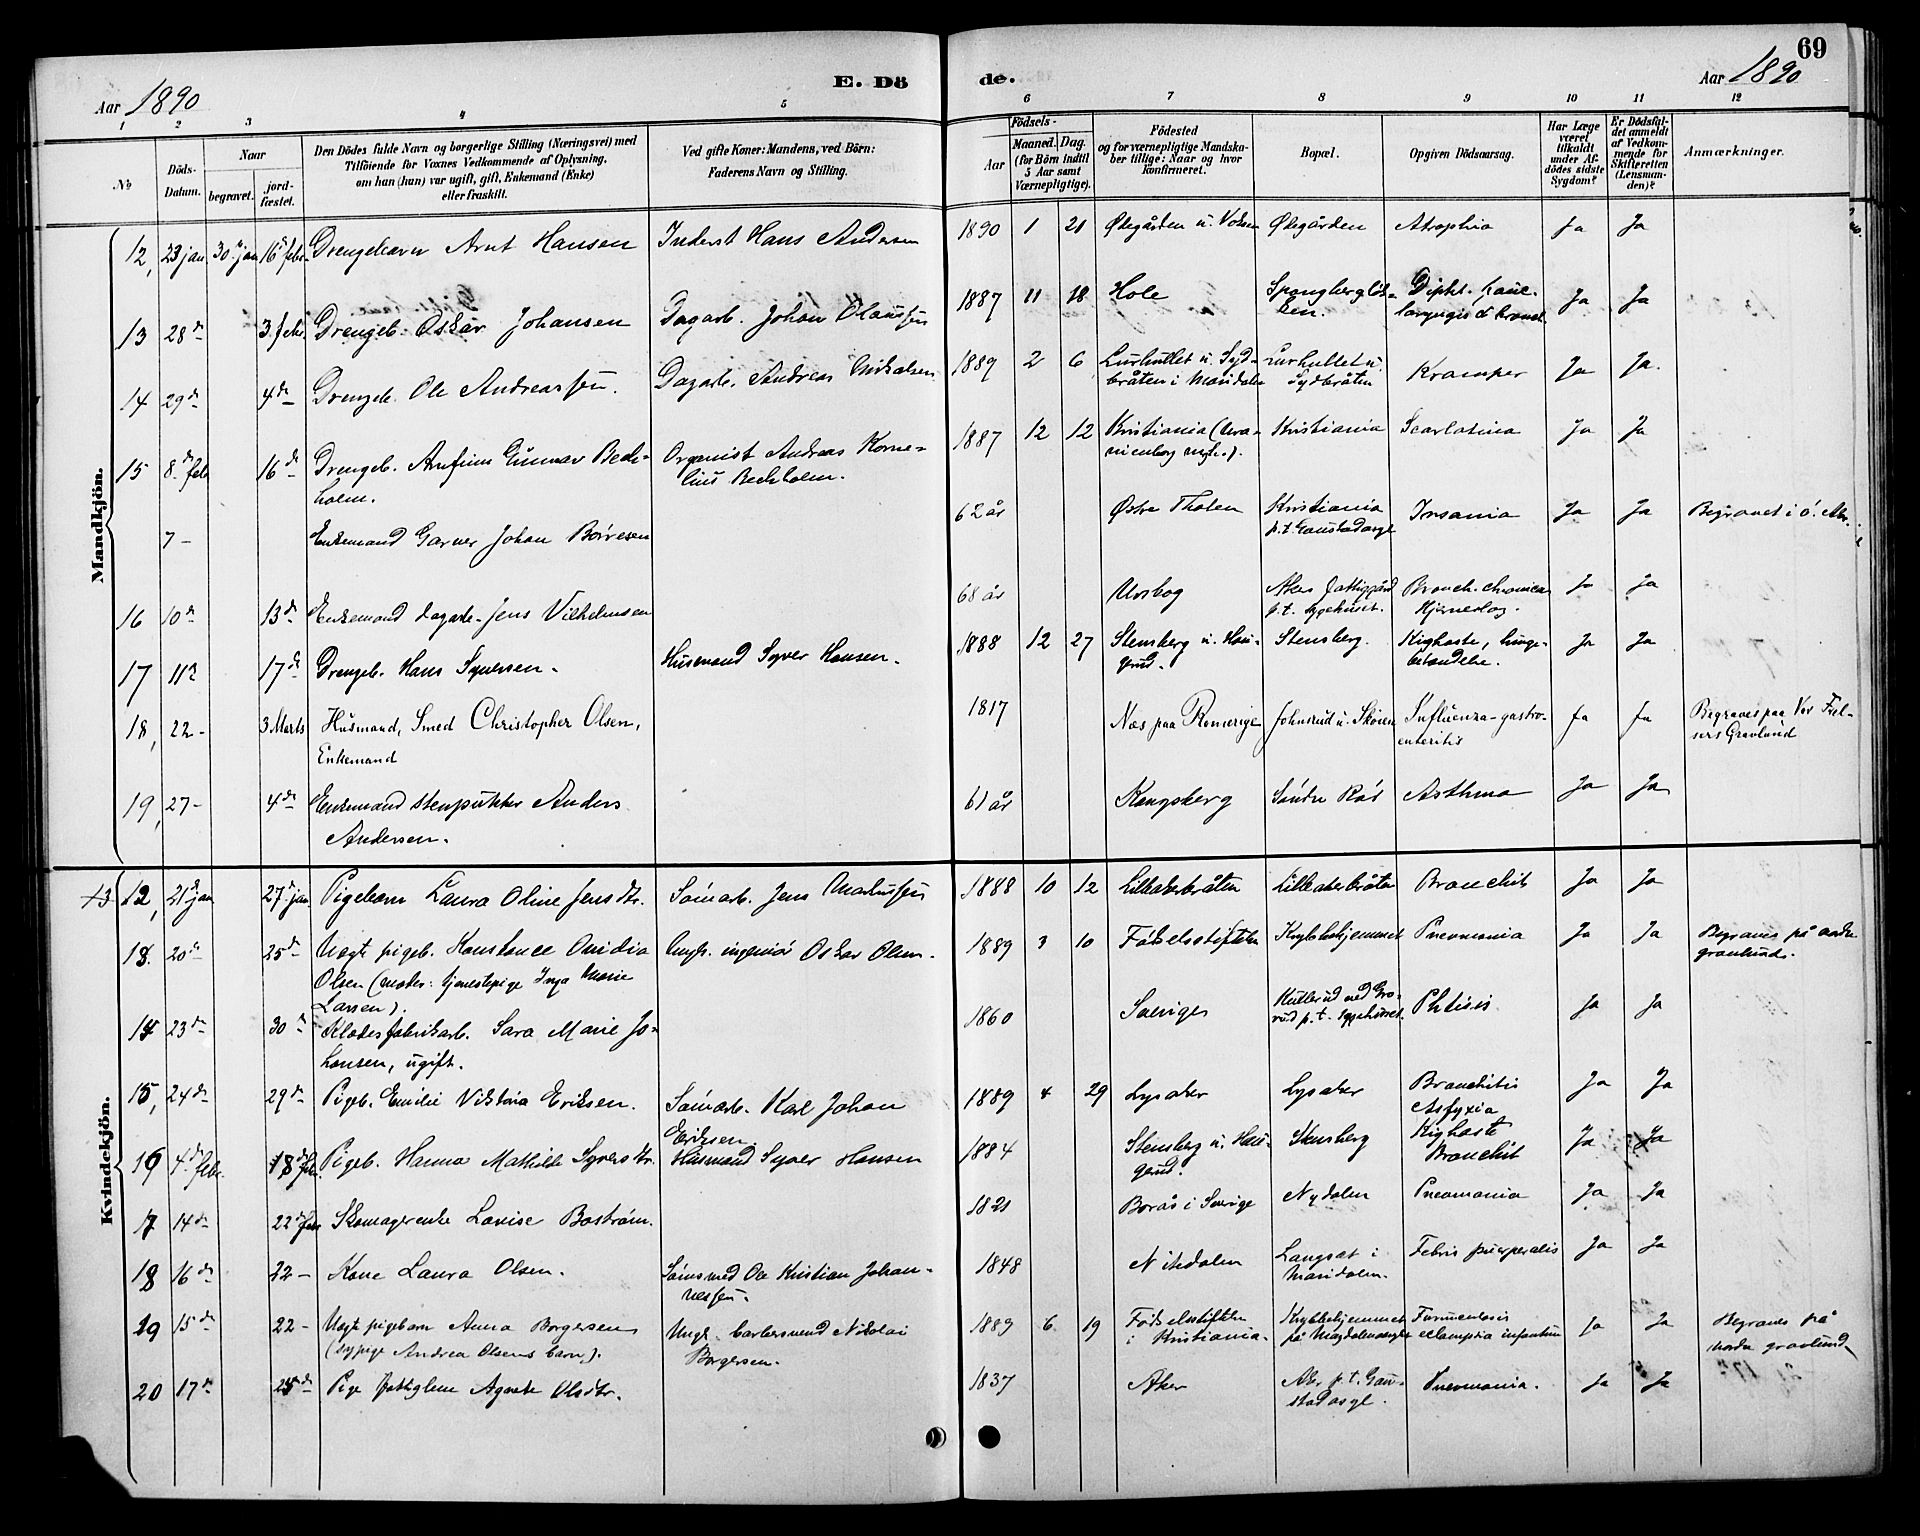 69
Aar 1890
E. Dö
de.
Aar 1890
1 2 3 4 5 6 7 8 9 10 11 12
№
Döds-Datum.
Naar
begravet.
jordfæstet.
Den Dödes fulde Navn og borgerlige Stilling (Næringsvei) med
Tilföiende for Voxnes Vedkommende af Oplysning,
om han (hun) var ugift, gift, Enkemand (Enke)
eller fraskilt.
Ved gifte Koner: Mandens, ved Börn:
Faderens Navn og Stilling.
Födsels-
Aar
Maaned. Dag.
(for Börn indtil
5 Aar samt
Værnepligtige).
Födested
og for værnepligtige Mandskaber tillige: Naar og hvor
konfirmeret.
Bopæl.
Opgiven Dödsaarsag.
Har Læge
været
tilkaldt
under Afdödes sidste
Sygdom?
Er Dödsfaldet anmeldt
af Vedkommende for
Skifteretten
(Lensmanden)?
Anmærkninger.
Mandkjön.
12, 23 jan. 30 jan 16 febr. Drengebarn Arnt Hansen Inderst Hans Andersen 1890 1 21 Ødegården u. Ødegården Atrophia Ja Ja
13 28 3. febr. Drengeb. Oskar Johansen Dagarb. Johan Olaussen 1887 11 18 Hole Ja Ja
14 29 4 Drengeb. Ole Andreassen. Dagarb. Andreas 1889 2 6 Lurhullet u. Sydbråten i Maridalen Lurhullet u. Sydbråten Kramper Ja Ja.
15 8. feb 16 Drengeb. Arnfinn Gunnar Beckholm. Organist Andreas Kornelius Beckholm. 1887 12 12 Kristiania (Uranienborg mgh.). Kristiania Scarlatina Ja Ja
7 - Enkemand Garver Johan Börresen 62 år Østre Thoten Kristiania p.t. Gaustadasyl Insania Ja Ja Begravet i ö. Aker
16 10 13 Enkemand dagarb. Jens Vilhelmsen 68 år Aker fattiggård p.t. sygehuset. Bronch. chronica Ja Ja
17 11 17 Drengeb. Hans Syversen. Husmand Syver Hansen. 1888 12 27 Stensberg u. Haugerud. Stensberg. Kighoste, lungebetændelse. Ja Ja
18, 22 - 3 Marts Husmand, Smed Christopher Olsen, Enkemand 1817 Næs paa Romerige Johnsrud u. Skøien Influenza-gastroenteritis Ja Ja Begraves paa Vor Frelsers Gravlund
19, 27 - 4 Enkemand stenpukker Anders Andersen. 61 år Kongsberg Söndre Asthma Ja Ja
Kvindekjön.
12, 21 jan 27 jan Pigebarn Laura Oline Jensdtr. Jens 1888 10 12 Lilleakerbråten Lilleakerbråten Bronchit Ja Ja
13. 20 25 Uægt pigeb. Konstance Ovidia Olsen (moder: tjenestepige Inga Marie Larsen). Ungk. ingeniör Oskar Olsen. 1889 3 10 Födselsstiftelsen Krybbehjemmet Pneumonia Ja Ja Begraves på nordre gravlund.
14 23 30 Klædesfabrikarb. Sara Marie Johansen, ugift. 1860 Sverige p.t. sygehuset Phtisis Ja Ja
15, 24 29 Pigeb. Emilie Viktoria Eriksen. Karl Johan Eriksen 1889 4 29 Lysaker Lysaker Bronchitis Asfyxia Ja Ja
16 4 febr. 18 feb. Pigeb. Hanna Mathilde Syversdtr. Husmand Syver Hansen 1884 Stensberg u. Haugerud. Stensberg Kighoste Bronchit Ja Ja
17 14 22 feb Skomagerenke Lovise Boström. 1821 Borås i Sverige Nydalen Pneumonia Ja Ja
18 16 22 - Kone Laura Olsen. Ole Kristian Johannessen. 1848 Nitedalen Langset i Maridalen. Febris puerperalis Ja Ja
19 15 22 - Uægte pigebarn Anna Borgersen (sypige Andrea Olsens barn). Ungk. barbersvend Nikolai Borgersen. 1889 6 19 Födselsstiftelsen i Kristiania. Krybbehjemmet på Furunculosis eclampsia infantum Ja Ja Begraves på nordre gravlund
20 17 25 Pige fattiglem Agnete Olsdtr. 1837 Aker Aker p.t. Gaustadasyl. Pneumonia. Ja Ja